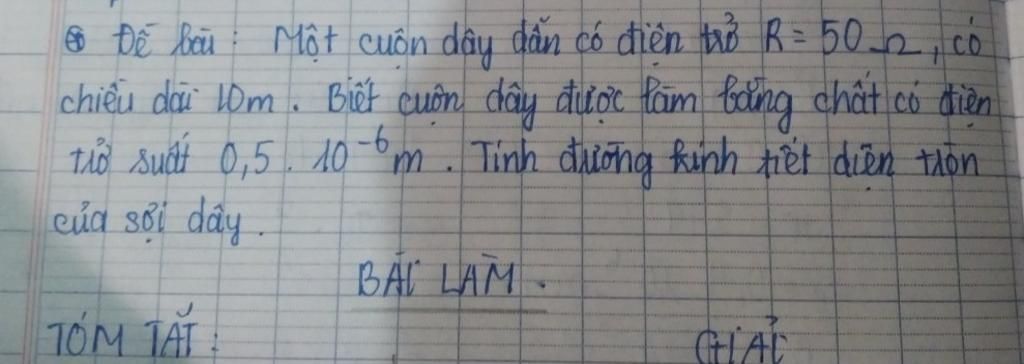 Đề bài : Một cuộn dây dẫn có điện trở R = 50 Ω, có
chiều dài 10m . Biết cuộn dây được làm bằng chất có điện
trở suất 0,5 . 10⁻⁶ m . Tính đường kính tiết diện tròn
của sợi dây .
BÀI LÀM .
TÓM TẮT : GIẢI